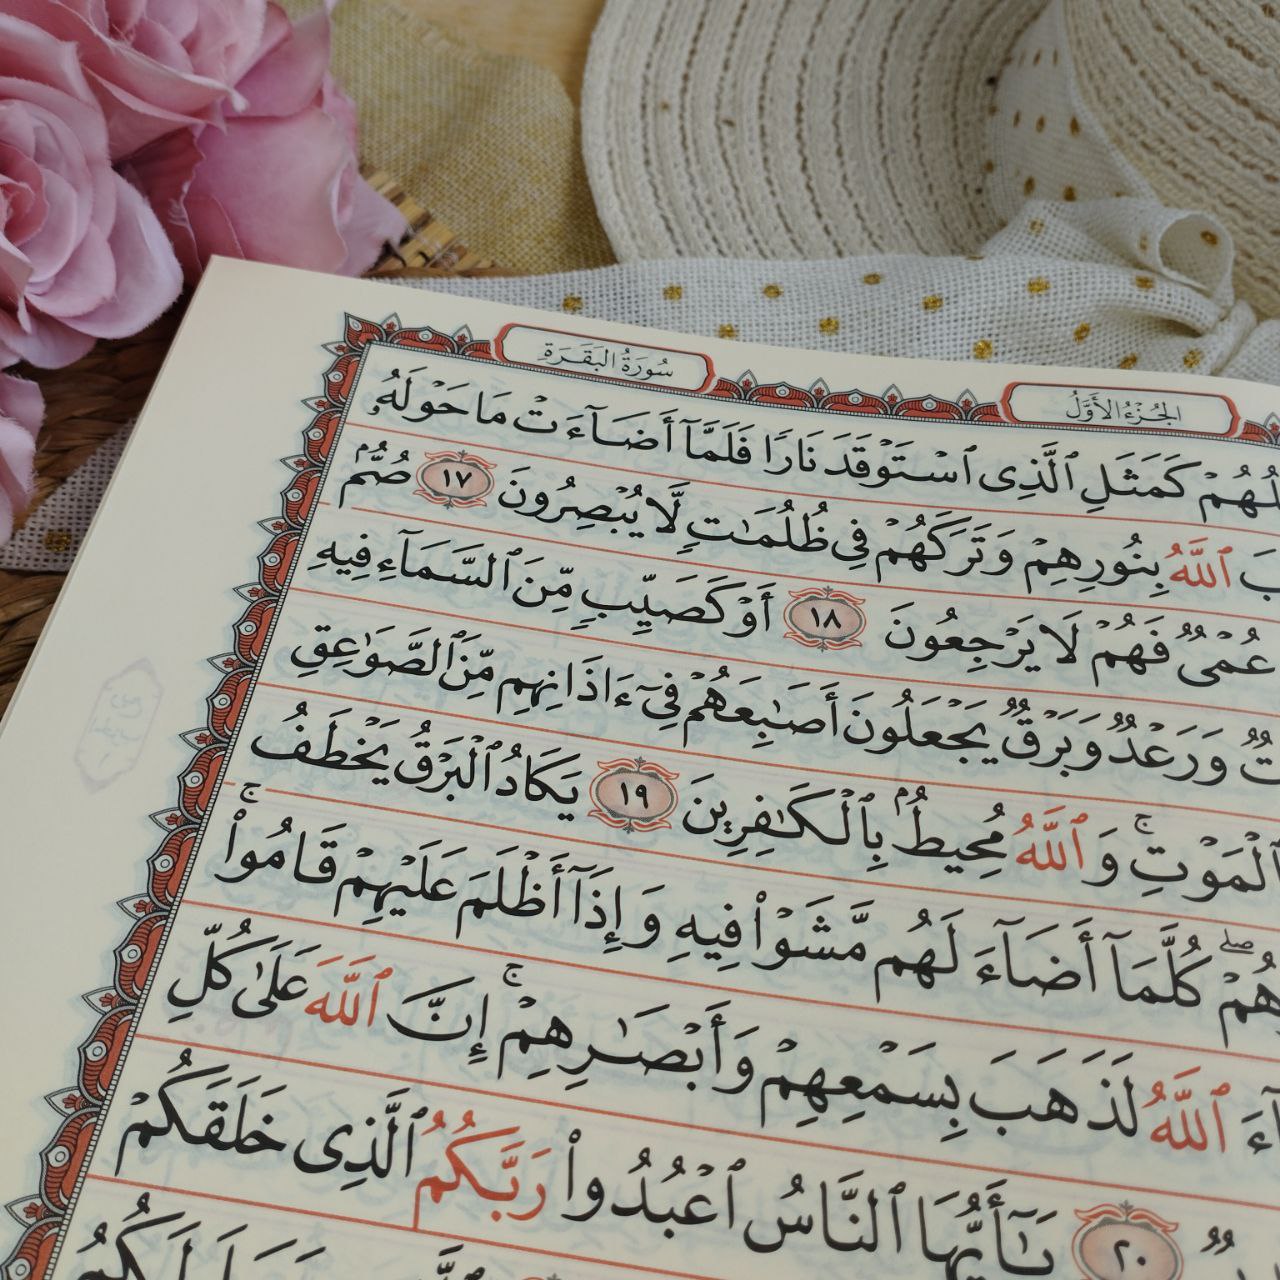 سُورَةُ البَقَرَةِ
الجُزْءُ الأَوَّلُ
كَمَثَلِ ٱلَّذِى ٱسْتَوْقَدَ نَارًا فَلَمَّآ أَضَآءَتْ مَا حَوْلَهُۥ
ٱللَّهُ بِنُورِهِمْ وَتَرَكَهُمْ فِى ظُلُمَٰتٍ لَّا يُبْصِرُونَ ١٧ صُمٌّۢ
عُمْىٌ فَهُمْ لَا يَرْجِعُونَ ١٨ أَوْ كَصَيِّبٍ مِّنَ ٱلسَّمَآءِ فِيهِ
وَرَعْدٌ وَبَرْقٌ يَجْعَلُونَ أَصَٰبِعَهُمْ فِىٓ ءَاذَانِهِم مِّنَ ٱلصَّوَٰعِقِ
ٱلْمَوْتِ ۚ وَٱللَّهُ مُحِيطٌۢ بِٱلْكَٰفِرِينَ ١٩ يَكَادُ ٱلْبَرْقُ يَخْطَفُ
كُلَّمَآ أَضَآءَ لَهُم مَّشَوْا۟ فِيهِ وَإِذَآ أَظْلَمَ عَلَيْهِمْ قَامُوا۟ ۚ
ٱللَّهُ لَذَهَبَ بِسَمْعِهِمْ وَأَبْصَٰرِهِمْ ۚ إِنَّ ٱللَّهَ عَلَىٰ كُلِّ
٢٠ يَٰٓأَيُّهَا ٱلنَّاسُ ٱعْبُدُوا۟ رَبَّكُمُ ٱلَّذِى خَلَقَكُمْ